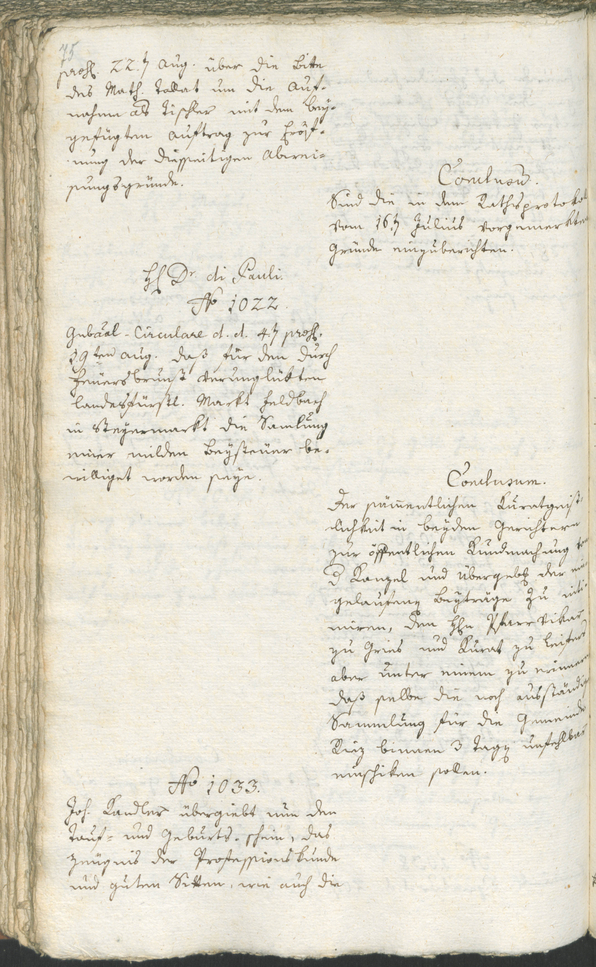 75
praes. 22.t Aug. über die Bitte
des Math. Tallat um die Auf-
nahme als Tischler mit dem bey-
gefügten Auftrag zur Eröf-
nung der diesseitigen Abwei-
sungsgründe.
Conclusum.
Sind die in dem Rathsprotokoll
vom 16.t Julius vorgemerkten
Gründe einzuberichten.
H. Dr. di Pauli.
No 1022.
Gubernal-Circulare d. d. 4.t praes.
19ten Aug. daß für den durch
Feuersbrunst verunglükten
landesfürstl. Markt Feldbach
in Steyermarkt die Samlung
einer milden Beysteuer be-
williget worden seye.
Conclusum.
Der sämmentlichen Kuratgeist-
lichkeit in beyden Gerichtern
zur öffentlichen Kundmachung von
d Kanzel und übergebg der ein
gelaufene Beyträge zu inti-
miren, dem Hn Pfarr Vikar
zu Gries und Kurat zu Leifers
aber unter einem zu erinnern
daß selbe die noch ausständige
Sammlung für die Gemeinde
binnen 3 Tagen unfehlbar
einschiken sollen.
No 1033.
Jos. Kandler übergiebt nun den
Tauf- und Geburts-schein, das
Zeugnis der Professionskunde
und guten Sitten, wie auch die